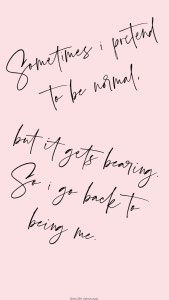 Sometimes i pretend
to be normal,
but it gets bearing.
So i go back to
being me.